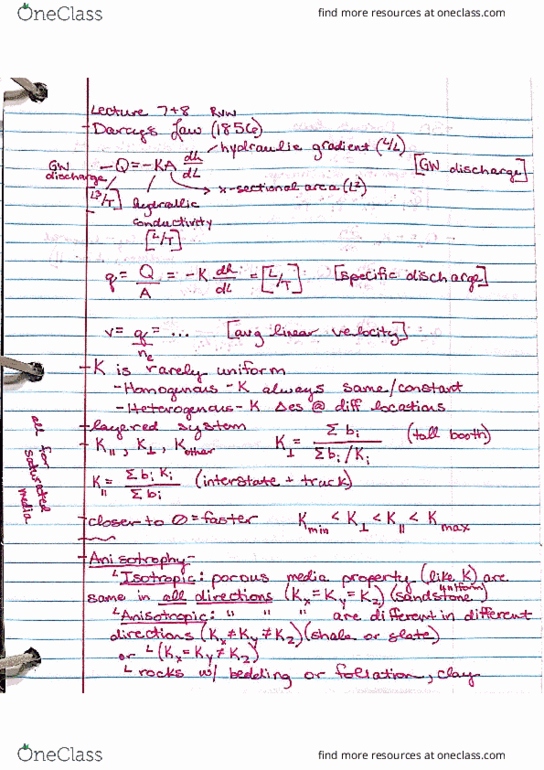 OneClass
find more resources at oneclass.com
Lecture 7+8 RVW
- Darcy's Law (1856)
hydraulic gradient (L/L)
GW discharge - Q = -KA dh/dL [GW discharge]
[L³/T] x-sectional area (L²)
hydrallic conductivity [L/T]
q = Q/A = -K dh/dL = [L/T] [specific discharge]
v = q/nₑ = ... [avg linear velocity]
- K is rarely uniform
- Homogenous - K always same/constant
- Heterogenous - K Δes @ diff locations
- layered system
- K∥, K⊥, Kother K⊥ = Σbi / Σbi/Ki (toll booth)
K∥ = Σbi Ki / Σbi (interstate + truck)
all for saturated media
- closer to 0 = faster Kmin < K⊥ < K∥ < Kmax
- Anisotrophy -
└ Isotropic: porous media property (like K) are
same in all directions (Kx = Ky = Kz) (uniform sandstone)
└ Anisotropic: " " " are different in different
directions (Kx ≠ Ky ≠ Kz) (shale or slate)
or └ (Kx = Ky ≠ Kz)
└ rocks w/ bedding or foliation, clay
OneClass
find more resources at oneclass.com